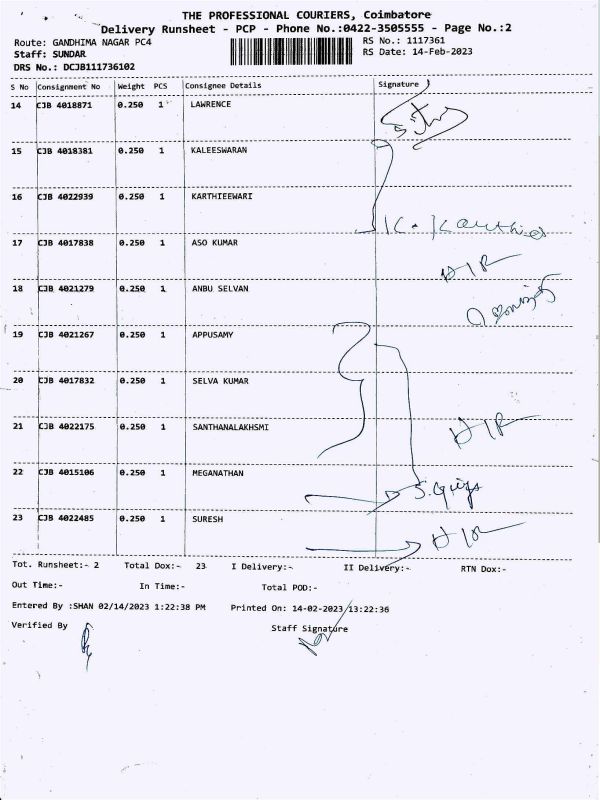 THE PROFESSIONAL COURIERS, Coimbatore
Delivery Runsheet - PCP - Phone No.:0422-3505555 - Page No.:2
Route: GANDHIMA NAGAR PC4
RS No.: 1117361
Staff: SUNDAR
RS Date: 14-Feb-2023
DRS No.: DCJB111736102
S No Consignment No Weight PCS Consignee Details Signature
14 CJB 4018871 0.250 1 LAWRENCE
15 CJB 4018381 0.250 1 KALEESWARAN
16 CJB 4022939 0.250 1 KARTHIEEWARI
17 CJB 4017838 0.250 1 ASO KUMAR
18 CJB 4021279 0.250 1 ANBU SELVAN
19 CJB 4021267 0.250 1 APPUSAMY
20 CJB 4017832 0.250 1 SELVA KUMAR
21 CJB 4022175 0.250 1 SANTHANALAKHSMI
22 CJB 4015106 0.250 1 MEGANATHAN
23 CJB 4022485 0.250 1 SURESH
Tot. Runsheet:- 2 Total Dox:- 23 I Delivery:- II Delivery:- RTN Dox:-
Out Time:- In Time:- Total POD:-
Entered By :SHAN 02/14/2023 1:22:38 PM Printed On: 14-02-2023/13:22:36
Verified By Staff Signature